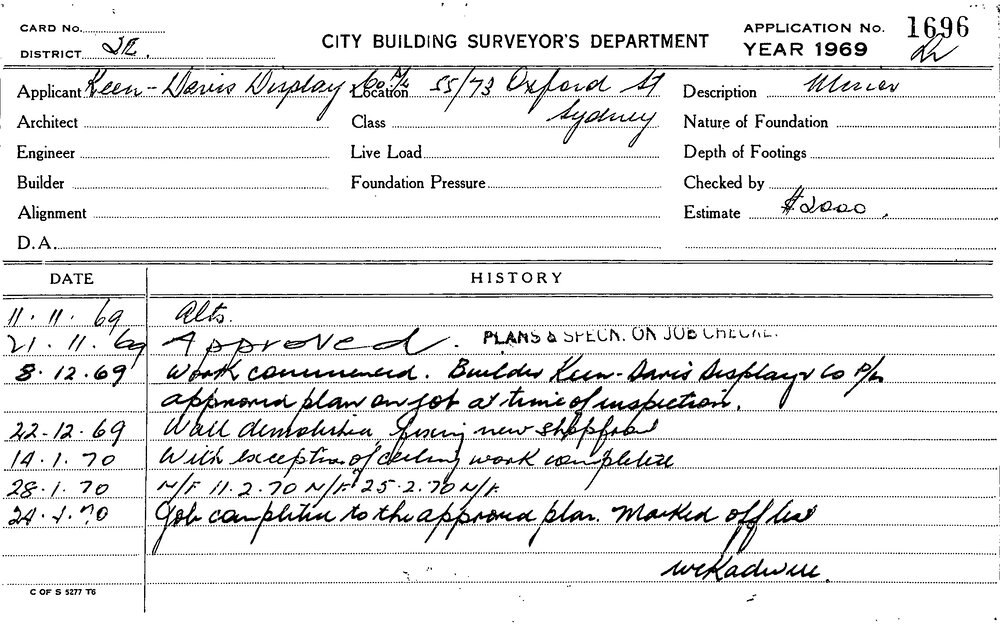 CARD No.
APPLICATION No. 1696
DISTRICT
CITY BUILDING SURVEYOR'S DEPARTMENT
YEAR 1969
Applicant Keen-Davis Display Co P/L Location 55/73 Oxford St Description Minor
Architect Class Sydney Nature of Foundation
Engineer Live Load Depth of Footings
Builder Foundation Pressure Checked by
Alignment Estimate $2000.
D.A.
DATE HISTORY
11.11.69 Alts.
21.11.69 Approved. PLANS & SPECN. ON JOB CHECKE.
8.12.69 Work commenced. Builder Keen-Davis Display Co P/L
approved plan on job at time of inspection.
22-12.69 Wall demolition, fixing new shopfront
14.1.70 With exception of ceiling work complete
28.1.70 N/F 11.2.70 N/F 25.2.70 N/F.
Job completed to the approved plan. Marked off list
C OF S 5277 T6